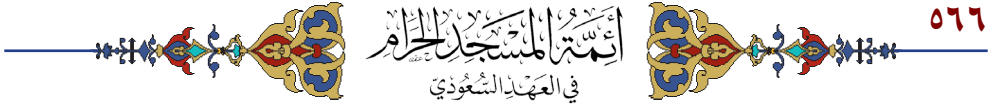 ٥٦٦
أَئِمَّةُ المَسْجِدِ الحَرَامِ
فِي العَهْدِ السُّعُودِيّ